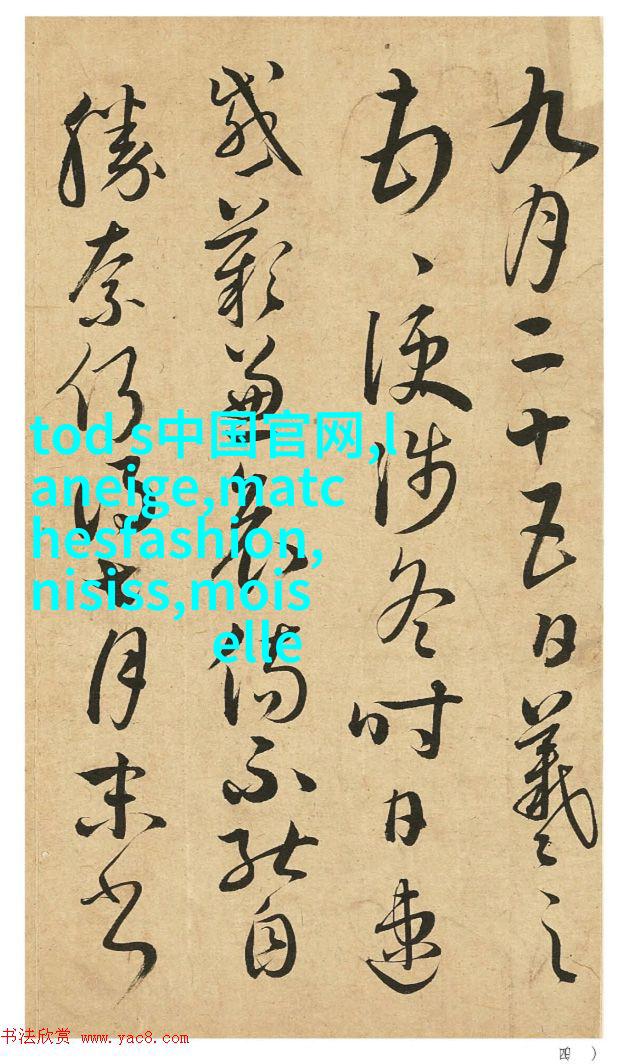 九月二十五日羲之
便涉冬時日速
感歎兼哀傷不能自
勝奈何得七月末書
tod s中国官网,l
aneige,matc
hesfashion,
nisiss,mois
elle
书法欣赏 www.yac8.com
四 )